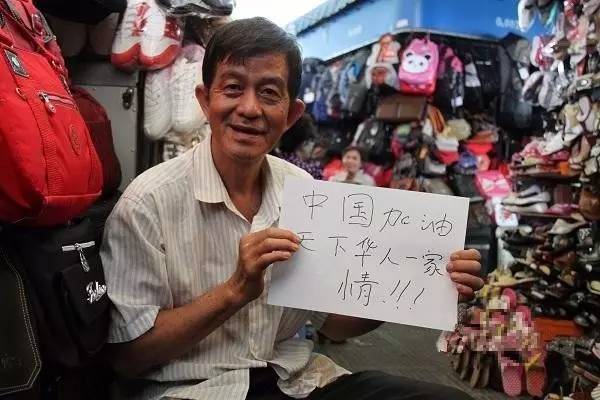 中国加油
天下华人一家
情!!!